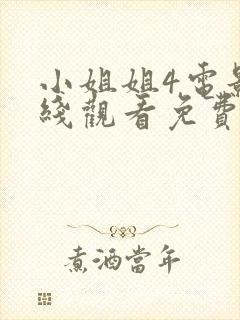 小姐姐4電影
綫觀看免費
煮酒當年